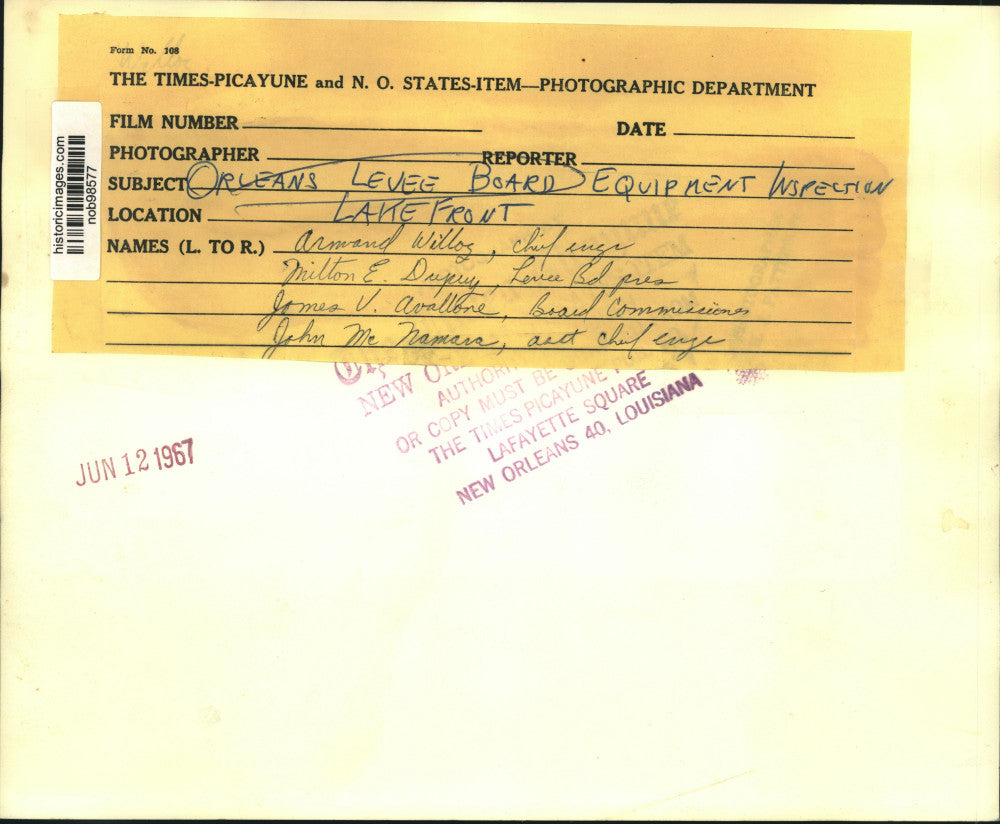 Form No. 108
Willoz
THE TIMES-PICAYUNE and N. O. STATES-ITEM—PHOTOGRAPHIC DEPARTMENT
FILM NUMBER DATE
PHOTOGRAPHER REPORTER
SUBJECT ORLEANS LEVEE BOARD EQUIPMENT INSPECTION
LOCATION LAKEFRONT
NAMES (L. TO R.) Armand Willoz, chief engr
Milton E. Dupuy, Levee Bd pres
James V. Avallone, Board Commissioner
John McNamara, asst chief engr
historicimages.com
nob98577
NEW OR
AUTHORI
OR COPY MUST BE
THE TIMES PICAYUNE
LAFAYETTE SQUARE
NEW ORLEANS 40, LOUISIANA
JUN 12 1967